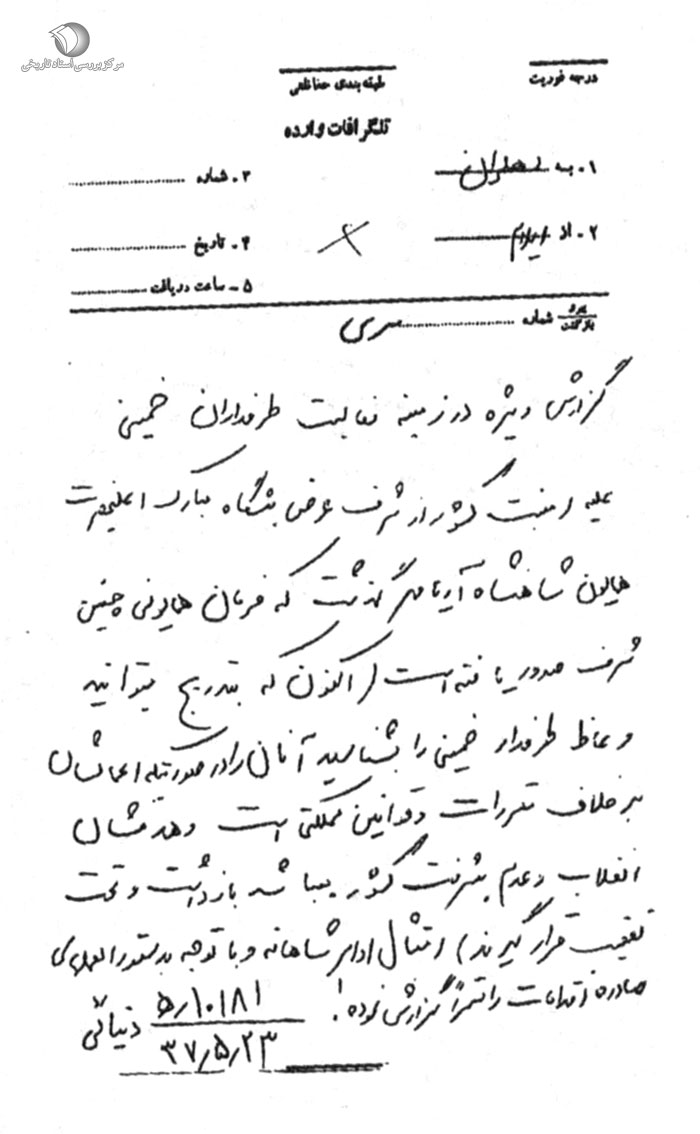 مرکز بررسی اسناد تاریخی
درجه فوریت
طبقه‌بندی حفاظتی
تلگرافات وارده
۱ - به تهران
۳ - شماره
۲ - از ایلام
۴ - تاریخ
۵ - ساعت دریافت
شماره سری
گزارش ویژه در زمینه فعالیت طرفداران خمینی
علیه امنیت کشور از شرف عرض پیشگاه مبارک اعلیحضرت
همایون شاهنشاه آریامهر گذشت که فرمان همایونی چنین
شرف صدور یافته است (اکنون که بتدریج میتوانید
وعاظ طرفدار خمینی را بشناسید آنان را در صورتیکه اعمالشان
بر خلاف مقررات و قوانین مملکتی است و هدفشان
انقلاب و عدم پیشرفت کشور میباشد بازداشت و تحت
تعقیب قرار گیرند) امتثال اوامر شاهانه و با توجه بدستورالعملهای
صادره اقدامات را گزارش نموده!
۵/۱۰۱۸۱
۳۷/۵/۲۳